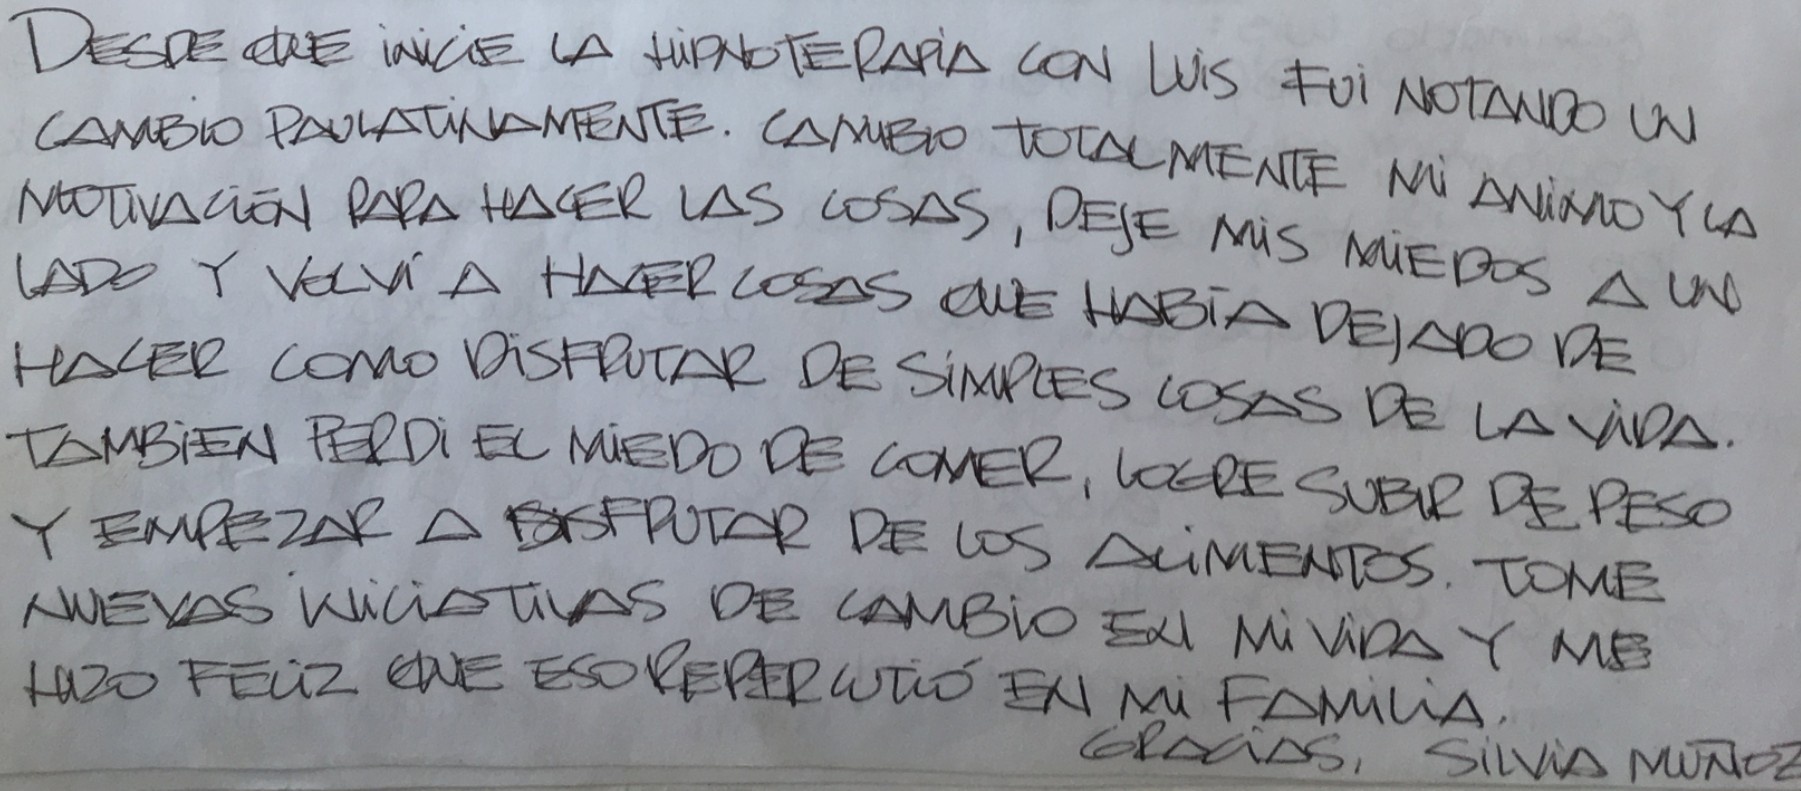 DESDE QUE INICIE LA HIPNOTERAPIA CON LUIS FUI NOTANDO UN
CAMBIO PAULATINAMENTE. CAMBIO TOTALMENTE MI ANIMO Y LA
MOTIVACIÓN PARA HACER LAS COSAS, DEJE MIS MIEDOS A UN
LADO Y VOLVÍ A HACER COSAS QUE HABÍA DEJADO DE
HACER COMO DISFRUTAR DE SIMPLES COSAS DE LA VIDA.
TAMBIEN PERDI EL MIEDO DE COMER, LOGRE SUBIR DE PESO
Y EMPEZAR A DISFRUTAR DE LOS ALIMENTOS. TOME
NUEVAS INICIATIVAS DE CAMBIO EN MI VIDA Y ME
HIZO FELIZ QUE ESO REPERCUTIÓ EN MI FAMILIA.
GRACIAS, SILVIA MUÑOZ